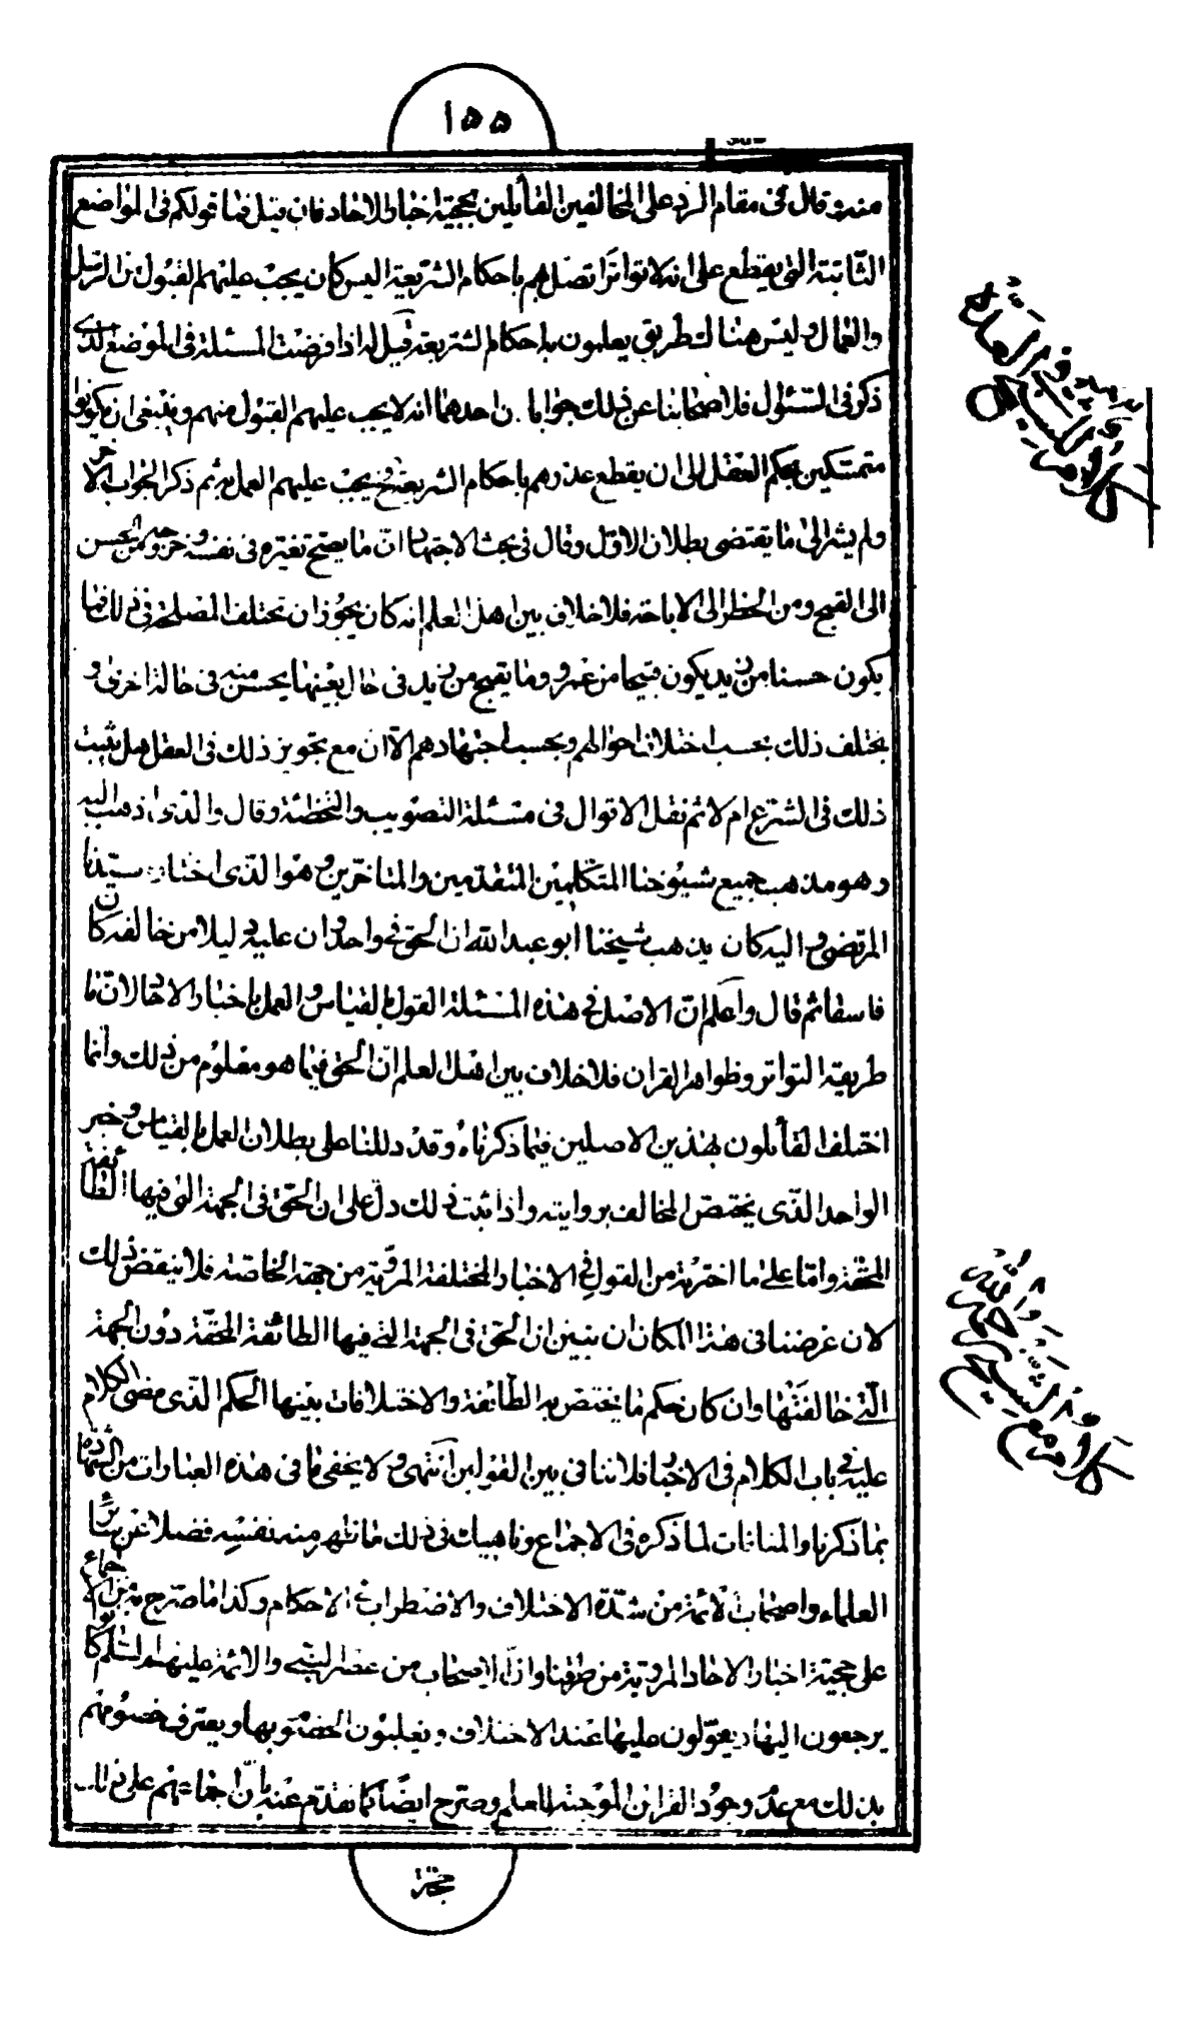 ١٥٥
منه وقال في مقام الرد على المخالفين القائلين بحجية اخبار الاحاد فان قيل فما قولكم في المواضع
الثابتة التي يقطع على انه لا تواتر اتصل بهم باحكام الشريعة اليس كان يجب عليهم القبول من الرسل
والعمال وليس هناك طريق يعلمون به احكام الشريعة قيل له اذا فرضت المسئلة في الموضع الذي
ذكر في السئوال فلاصحابنا عن ذلك جوابان احدهما انه لا يجب عليهم القبول منهم وينبغي ان يكونوا
متمسكين بحكم العقل الى ان يقطع عذرهم باحكام الشريعة فح يجب عليهم العمل به ثم ذكر الجواب الاخر
ولم يشر الى ما يقتضى بطلان الاول وقال في بحث الاجتهاد ان ما يصح تغيره في نفسه وخروجه من الحسن
الى القبح ومن الحظر الى الاباحة فلا خلاف بين اهل العلم انه كان يجوز ان تختلف المصلحة في ذلك فما
يكون حسنا من زيد يكون قبيحا من عمرو وما يقبح من زيد في حال بعينها يحسن منه في حالة اخرى و
يختلف ذلك بحسب اختلاف احوالهم وبحسب اجتهادهم الا ان مع تجويز ذلك في العقل هل يثبت
ذلك في الشرع ام لا ثم نقل الاقوال في مسئلة التصويب والتخطئة وقال والذي اذهب اليه
وهو مذهب جميع شيوخنا المتكلمين المتقدمين والمتاخرين وهو الذي اختاره سيدنا
المرتضى و اليه كان يذهب شيخنا ابو عبد الله ان الحق في واحد وان عليه دليلا من خالفه كان
فاسقا ثم قال واعلم ان الاصل في هذه المسئلة القول بالقياس والعمل باخبار الاحاد لان ما
طريقه التواتر وظواهر القران فلا خلاف بين اهل العلم ان الحق فيما هو معلوم من ذلك وانما
اختلف القائلون بهذين الاصلين فيما ذكرناه وقد دللنا على بطلان العمل بالقياس وخبر
الواحد الذي يختص المخالف بروايته واذا ثبت ذلك دل على ان الحق في الجهة التي فيها الطائفة
المحقة واما على ما اخترته من القول في الاخبار المختلفة المروية من جهة الخاصة فلا ينقض ذلك
لان غرضنا في هذا المكان ان نبين ان الحق في الجهة التي فيها الطائفة المحقة دون الجهة
التي خالفتها وان كان حكم ما يختص به الطائفة والاختلافات بينها الحكم الذي مضى الكلام
عليه في باب الكلام في الاخبار فلا تنافي بين القولين انتهى ولا يخفى ما في هذه العبارات من الشهادة
بما ذكرنا والمنافات لما ذكره في الاجماع وناهيك في ذلك ما ظهر منه نفسه فضلا عن سائر
العلماء واصحاب الائمة من شدة الاختلاف والاضطراب في الاحكام وكذا ما صرح به من الاجماع
على حجية اخبار الاحاد المروية من طرقنا وان الاصحاب من عصر النبي والائمة عليهم السلم كانوا
يرجعون اليها ويعولون عليها عند الاختلاف ويغلبون الخصوم بها ويعترف خصومهم
بذلك مع عدم وجود القرائن الموجبة للعلم وصرح ايضا كما تقدم عنه بان اجماعهم على
حجة
كلام الشيخ في العدة
كلام مع الشيخ رحمه الله